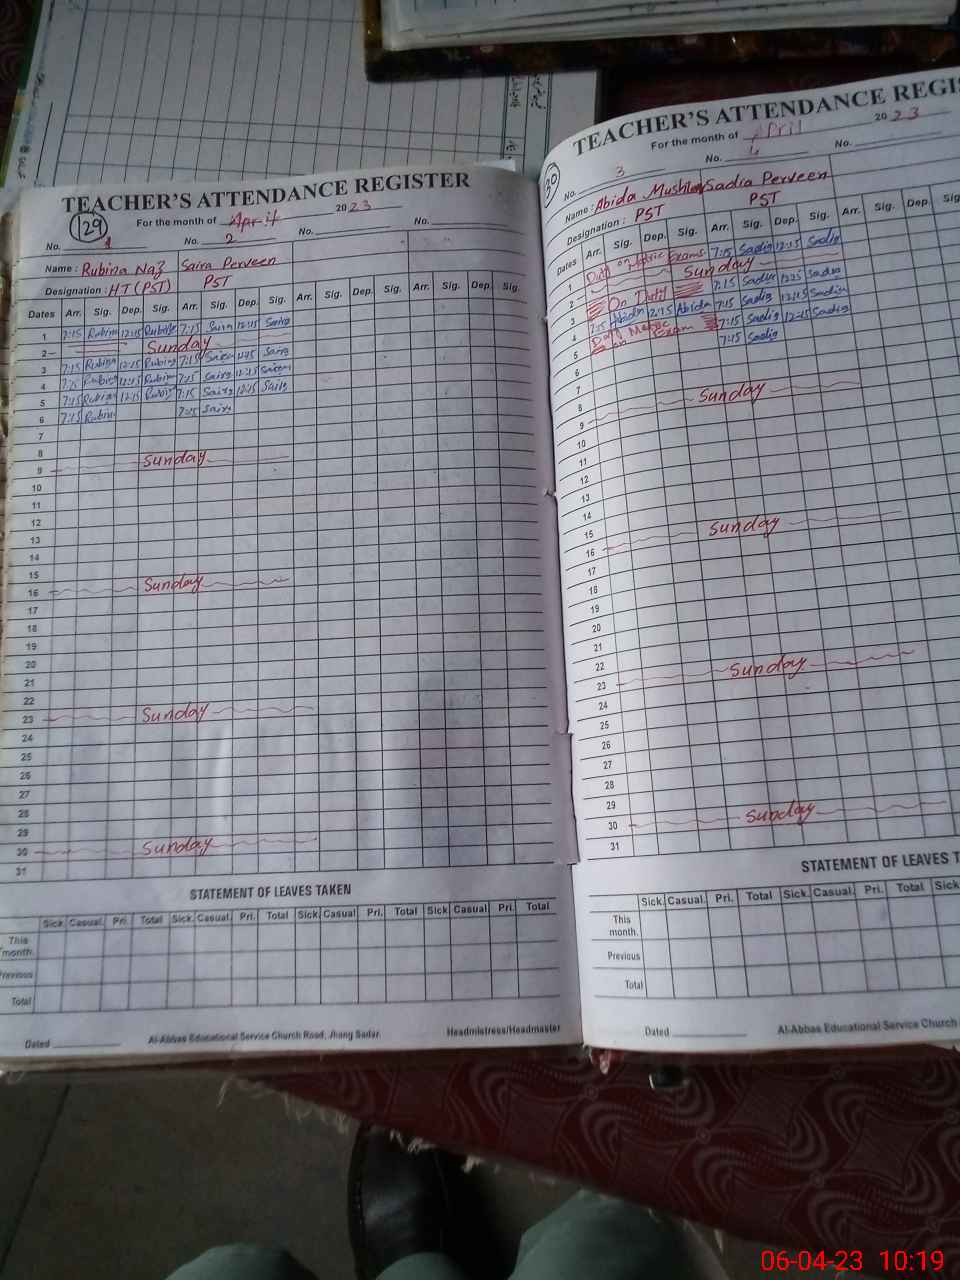 TEACHER'S ATTENDANCE REGISTER
129
For the month of April 2023
No. 1 No. 2 No. No.
Name : Rubina Naz Saira Perveen
Designation : HT (PST) PST
Dates Arr. Sig. Dep. Sig. Arr. Sig. Dep. Sig. Arr. Sig. Dep. Sig. Arr. Sig. Dep. Sig.
1 7:15 Rubina 12:15 Rubina 7:15 Saira 12:15 Saira
2 Sunday
3 7:15 Rubina 12:15 Rubina 7:15 Saira 12:15 Saira
4 7:15 Rubina 12:15 Rubina 7:15 Saira 12:15 Saira
5 7:15 Rubina 12:15 Rubina 7:15 Saira 12:15 Saira
6 7:15 Rubina 7:15 Saira
7
8
9 Sunday
10
11
12
13
14
15
16 Sunday
17
18
19
20
21
22
23 Sunday
24
25
26
27
28
29
30 Sunday
31
STATEMENT OF LEAVES TAKEN
Sick. Casual. Pri. Total Sick. Casual. Pri. Total Sick. Casual Pri. Total Sick. Casual Pri. Total
This month.
Previous
Total
Dated Al-Abbas Educational Service Church Road, Jhang Sadar. Headmistress/Headmaster
TEACHER'S ATTENDANCE REGIS
30
For the month of April 2023
No. 3 No. 4 No.
Name : Abida Mushtaq Sadia Perveen
Designation : PST PST
Dates Arr. Sig. Dep. Sig. Arr. Sig. Dep. Sig. Arr. Sig. Dep. Sig
1 Duty on Matric Exams 7:15 Sadia 12:15 Sadia
2 Sunday
3 On Duty 7:15 Sadia 12:15 Sadia
4 7:15 Abida 12:15 Abida 7:15 Sadia 12:15 Sadia
5 Duty on Matric Exam 7:15 Sadia 12:15 Sadia
6 7:15 Sadia
7
8
9 Sunday
10
11
12
13
14
15
16 Sunday
17
18
19
20
21
22
23 Sunday
24
25
26
27
28
29
30 Sunday
31
STATEMENT OF LEAVES T
Sick. Casual. Pri. Total Sick. Casual. Pri. Total Sick
This month.
Previous
Total
Dated Al-Abbas Educational Service Church
06-04-23 10:19